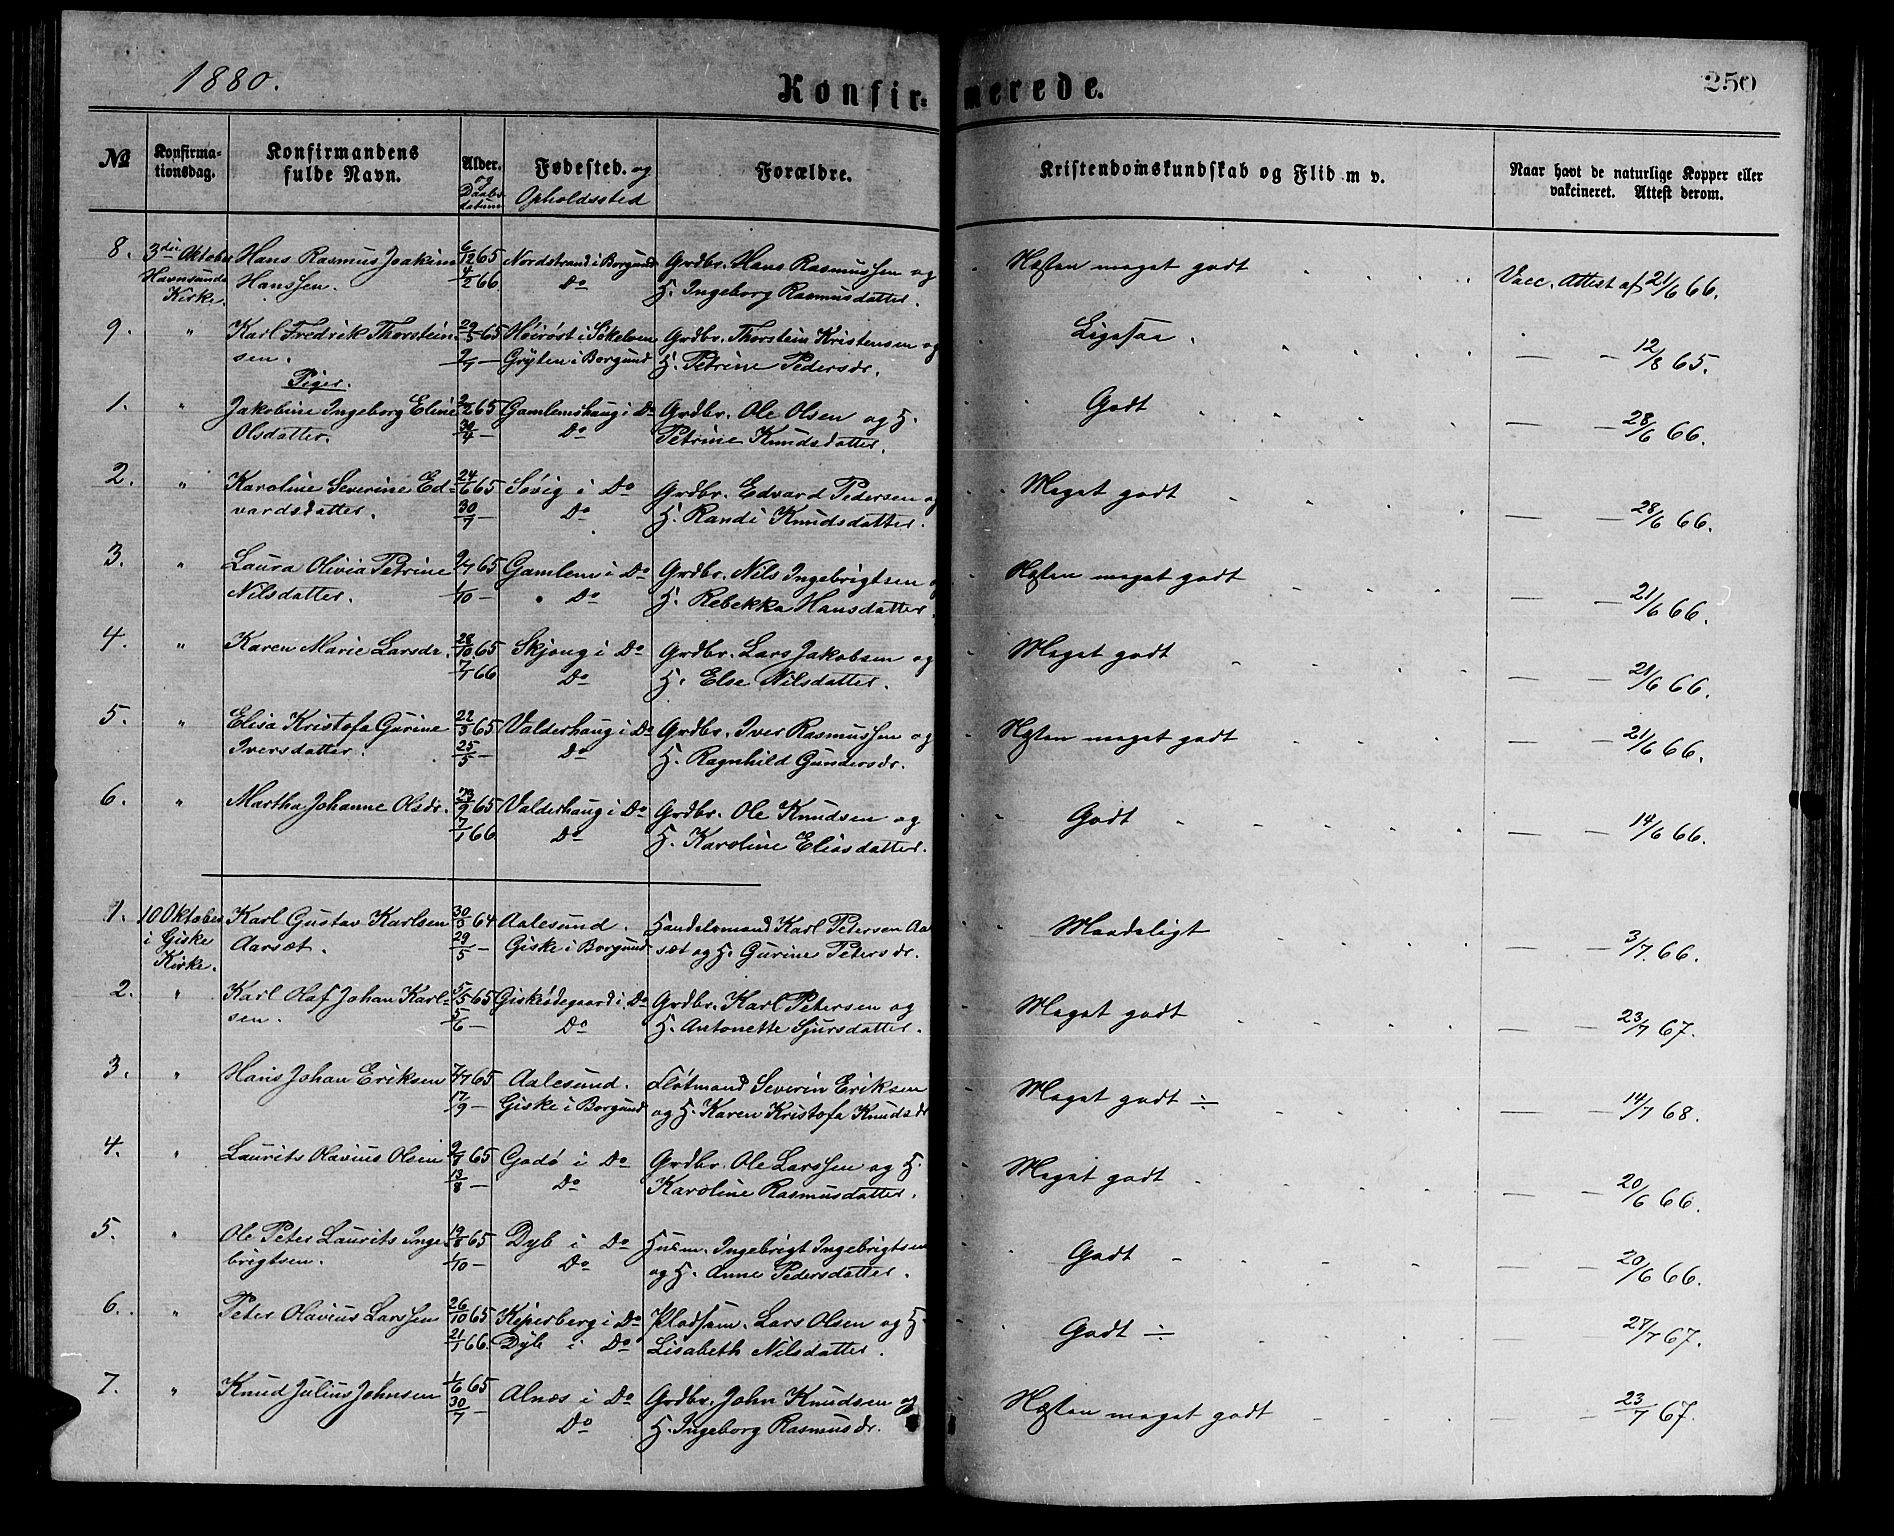 1880.
Konfirmerede.
250
№
Konfirmationsdag.
Konfirmandens fulde Navn.
Alder. og Daabsdatum
Fødested. og Opholdssted
Forældre.
Kristendomskundskab og Flid m v.
Naar havt de naturlige Kopper eller vakcineret. Attest derom.
8. 3die Oktober Hans Rasmus Joakim 6/12 65 Nordstrand i Borgund Grdbr. Hans Rasmussen og Næsten meget godt Vacc. Attest af 21/6 66.
Havnsunds Kirke. Hanssen. 4/2 66 Do H. Ingeborg Rasmusdatter.
9. " Karl Fredrik Thorstein- 29/5 65 Høirøst i Søkelven Grdbr. Thorstein Kristensen og Ligesaa. — — 12/8 65.
sen. 9/7 — Gryten i Borgund H. Petrine Pedersdr.
Piger.
1. " Jakobine Ingeborg Eline 65 Gamlemshaug i Do Grdbr. Ole Olsen og H. Godt — — 28/6 66.
Olsdatter. 30/4 — Do Petrine Knudsdatter.
2. " Karoline Severine Ed- 24/6 65 Søvig i Do Grdbr. Edvard Pedersen og Meget godt — — 28/6 66.
vardsdatter. 30/7 — Do H. Randi Knudsdatter.
3. " Laura Olivia Petrine 9/7 65 Gamlem i Do Grdbr. Nils Ingebrigtsen og Næsten meget godt — — 21/6 66.
Nilsdatter. 1/10 — Do H. Rebekka Hansdatter.
4. " Karen Marie Larsdr. 28/10 65 Skjong i Do Grdbr. Lars Jakobsen og Meget godt — — 21/6 66.
7/1 66 Do H. Else Nilsdatter.
5. " Elisa Kristofa Gurine 22/3 65 Valderhaug i Do Grdbr. Iver Rasmussen og Næsten meget godt — — 21/6 66.
Iversdatter. 25/5 — Do H. Ragnhild Gundersdr.
6. " Martha Johanne Olsdr. 23/9 65 Valderhaug i Do Grdbr. Ole Knudsen og Godt — — 14/6 66.
7/1 66 Do H. Karoline Eliasdatter.
1. 10 Oktober Karl Gustav Karlsen 30/3 64 Aalesund. Handelsmand Karl Petersen Aa Maadeligt — — 3/7 66.
i Giske Kirke. Aarsæt. 29/5 — Giske i Borgund sæt og H. Gurine Petersdr.
2. " Karl Olaf Johan Karl- 5/5 65 Giskeødegaard i Do Grdbr. Karl Petersen og Meget godt — — 23/7 67.
sen. 5/6 — Do H. Antonette Sjursdatter.
3. " Hans Johan Eriksen 7/7 65 Aalesund. Fløtmand Severin Eriksen Meget godt ÷ — — 14/7 68.
17/9 — Giske i Borgund og H. Karen Kristofa Knudsdr
4. " Laurits Olavius Olsen 9/7 65 Godø i Do Grdbr. Ole Larssen og H. Meget godt — — 20/6 66.
13/8 — Do Karoline Rasmusdatter.
5. " Ole Peter Laurits Inge- 19/8 65 Dyb i Do Husm. Ingebrigt Ingebrigtsen Godt — — 20/6 66.
brigtsen. 1/10 — Do og H. Anne Pedersdatter.
6. " Peter Olavius Larssen 26/10 65 Kiperberg i Do Pladsm. Lars Olsen og H. Godt ÷ — — 27/7 67.
21/1 66. Dyb i Do Lisabeth Nilsdatter.
7. " Knud Julius Johnsen 1/6 65 Alnæs i Do Grdbr. John Knudsen og Næsten meget godt — — 23/7 67.
30/7 — Do H. Ingeborg Rasmusdr.